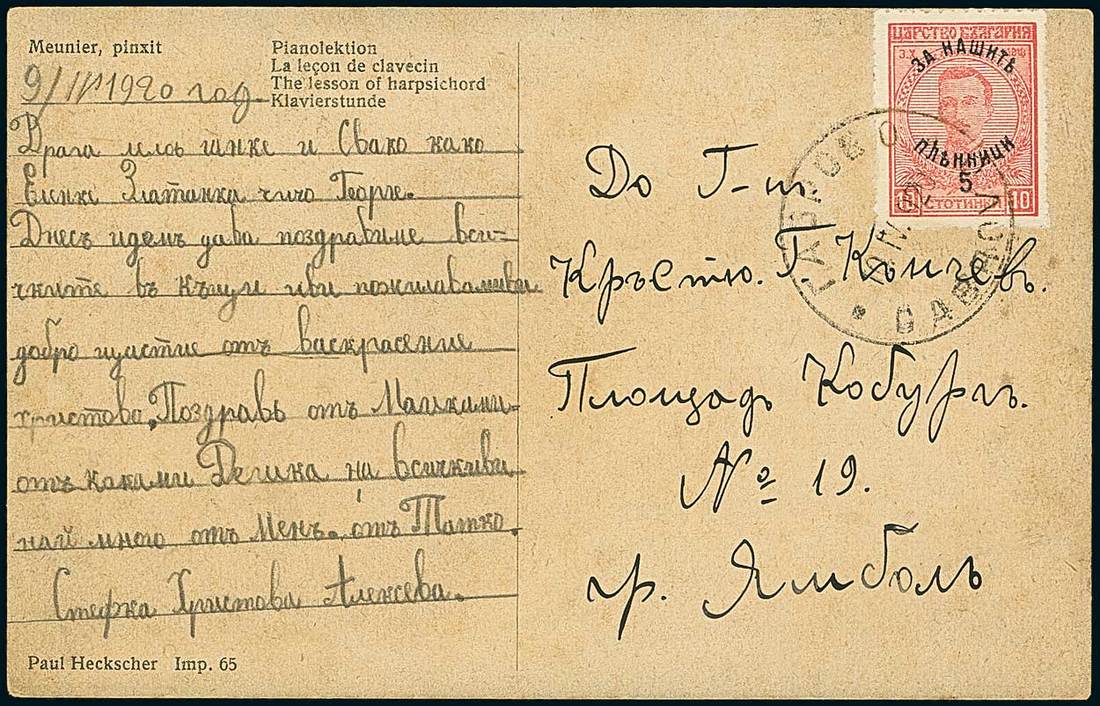 Meunier, pinxit
Pianolektion
La leçon de clavecin
The lesson of harpsichord
Klavierstunde
9/IV 1920 год
Драга инке и Свако како
Еленке Златанка чичо Георги.
Днесъ идемъ дава поздравиме вси-
чките въ къщи иви пожилавамиви
добро щастие отъ васкрасение
христово. Поздравь отъ Маиками-
отъ каками Дечика на всичкиви
най много отъ Менъ. отъ Татко.
Стефка Христова Алексева.
Paul Heckscher Imp. 65
ЦАРСТВО БЪЛГАРИЯ
ЗА НАШИТѢ
ПЛѢННИЦИ
5
10 СТОТИНКИ 10
ГАБРОВО
GABROVO
До Г-нъ
Кръстю. Г. Кънчевъ.
Площадъ Кобургъ.
№ 19.
гр. Ямболъ